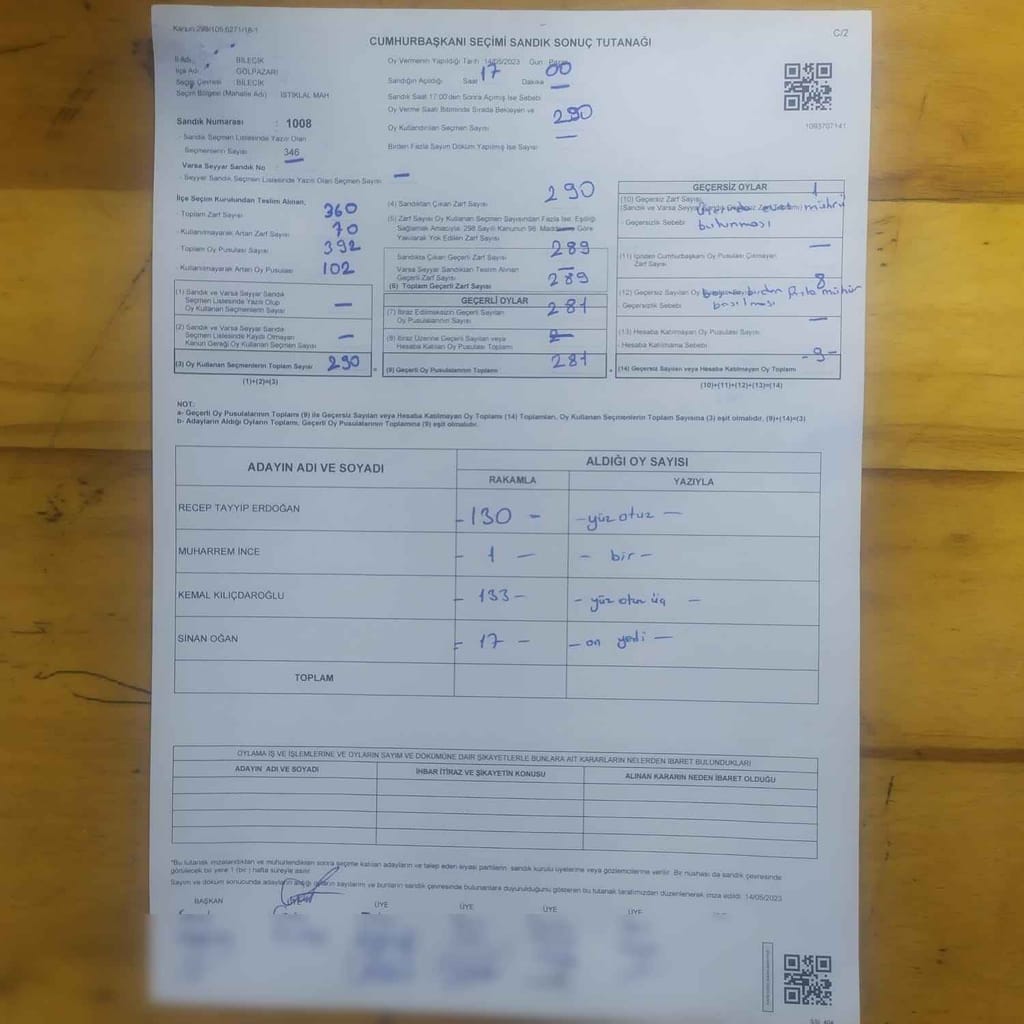 Kanun 298/105,6271/18-1
C/2
CUMHURBAŞKANI SEÇİMİ SANDIK SONUÇ TUTANAĞI
İl Adı : BİLECİK
İlçe Adı : GÖLPAZARI
Seçim Çevresi : BİLECİK
Seçim Bölgesi (Mahalle Adı) : İSTİKLAL MAH
Sandık Numarası : 1008
- Sandık Seçmen Listesinde Yazılı Olan
Seçmenlerin Sayısı 346
Varsa Seyyar Sandık No —
- Seyyar Sandık Seçmen Listesinde Yazılı Olan Seçmen Sayısı
Oy Vermenin Yapıldığı Tarih 14/05/2023 Gün: Pazar
Sandığın Açıldığı Saat 17 Dakika 00
Sandık Saat 17:00'den Sonra Açılmış İse Sebebi
Oy Verme Saati Bitiminde Sırada Bekleyen ve
Oy Kullandırılan Seçmen Sayısı 290
Birden Fazla Sayım Döküm Yapılmış İse Sayısı
1093707141
İlçe Seçim Kurulundan Teslim Alınan;
- Toplam Zarf Sayısı 360
- Kullanılmayarak Artan Zarf Sayısı 70
- Toplam Oy Pusulası Sayısı 392
- Kullanılmayarak Artan Oy Pusulası 102
(1) Sandık ve Varsa Seyyar Sandık
Seçmen Listesinde Yazılı Olup
Oy Kullanan Seçmenlerin Sayısı —
(2) Sandık ve Varsa Seyyar Sandık
Seçmen Listesinde Kayıtlı Olmayan
Kanun Gereği Oy Kullanan Seçmen Sayısı —
(3) Oy Kullanan Seçmenlerin Toplam Sayısı 290
(1)+(2)=(3)
(4) Sandıktan Çıkan Zarf Sayısı 290
(5) Zarf Sayısı Oy Kullanan Seçmen Sayısından Fazla İse, Eşitliği
Sağlamak Amacıyla; 298 Sayılı Kanunun 98. Maddesine Göre
Yakılarak Yok Edilen Zarf Sayısı —
Sandıkta Çıkan Geçerli Zarf Sayısı 289
Varsa Seyyar Sandıktan Teslim Alınan
Geçerli Zarf Sayısı —
(6) Toplam Geçerli Zarf Sayısı 289
GEÇERLİ OYLAR
(7) İtiraz Edilmeksizin Geçerli Sayılan
Oy Pusulalarının Sayısı 281
(8) İtiraz Üzerine Geçerli Sayılan veya
Hesaba Katılan Oy Pusulası Toplamı
(9) Geçerli Oy Pusulalarının Toplamı 281
GEÇERSİZ OYLAR
(10) Geçersiz Zarf Sayısı 1
Geçersizlik Sebebi Üzerinde evet mührü
bulunması
(11) İçinden Cumhurbaşkanı Oy Pusulası Çıkmayan
Zarf Sayısı —
(12) Geçersiz Sayılan Oy 8
Geçersizlik Sebebi birden fazla mühür
basılması
(13) Hesaba Katılmayan Oy Pusulası Sayısı —
- Hesaba Katılmama Sebebi
(14) Geçersiz Sayılan veya Hesaba Katılmayan Oy Toplamı -9-
(10)+(11)+(12)+(13)=(14)
NOT:
a- Geçerli Oy Pusulalarının Toplamı (9) ile Geçersiz Sayılan veya Hesaba Katılmayan Oy Toplamı (14) Toplamları, Oy Kullanan Seçmenlerin Toplam Sayısına (3) eşit olmalıdır. (9)+(14)=(3)
b- Adayların Aldığı Oyların Toplamı, Geçerli Oy Pusulalarının Toplamına (9) eşit olmalıdır.
ADAYIN ADI VE SOYADI ALDIĞI OY SAYISI
RAKAMLA YAZIYLA
RECEP TAYYİP ERDOĞAN - 130 - - yüz otuz -
MUHARREM İNCE - 1 - - bir -
KEMAL KILIÇDAROĞLU - 133 - - yüz otuz üç -
SİNAN OĞAN - 17 - - on yedi -
TOPLAM
OYLAMA İŞ VE İŞLEMLERİNE VE OYLARIN SAYIM VE DÖKÜMÜNE DAİR ŞİKAYETLERLE BUNLARA AİT KARARLARIN NELERDEN İBARET BULUNDUKLARI
ADAYIN ADI VE SOYADI İHBAR İTİRAZ VE ŞİKAYETİN KONUSU ALINAN KARARIN NEDEN İBARET OLDUĞU
*Bu tutanak imzalandıktan ve mühürlendikten sonra seçime katılan adayların ve talep eden siyasi partilerin sandık kurulu üyelerine veya gözlemcilerine verilir. Bir nüshası da sandık çevresinde
görülecek bir yere 1 (bir) hafta süreyle asılır.
Sayım ve döküm sonucunda adayların aldığı oyların sayılarını ve bunların sandık çevresinde bulunanlara duyurulduğunu gösteren bu tutanak tarafımızdan düzenlenerek imza edildi. 14/05/2023
BAŞKAN ÜYE ÜYE ÜYE ÜYE ÜYE